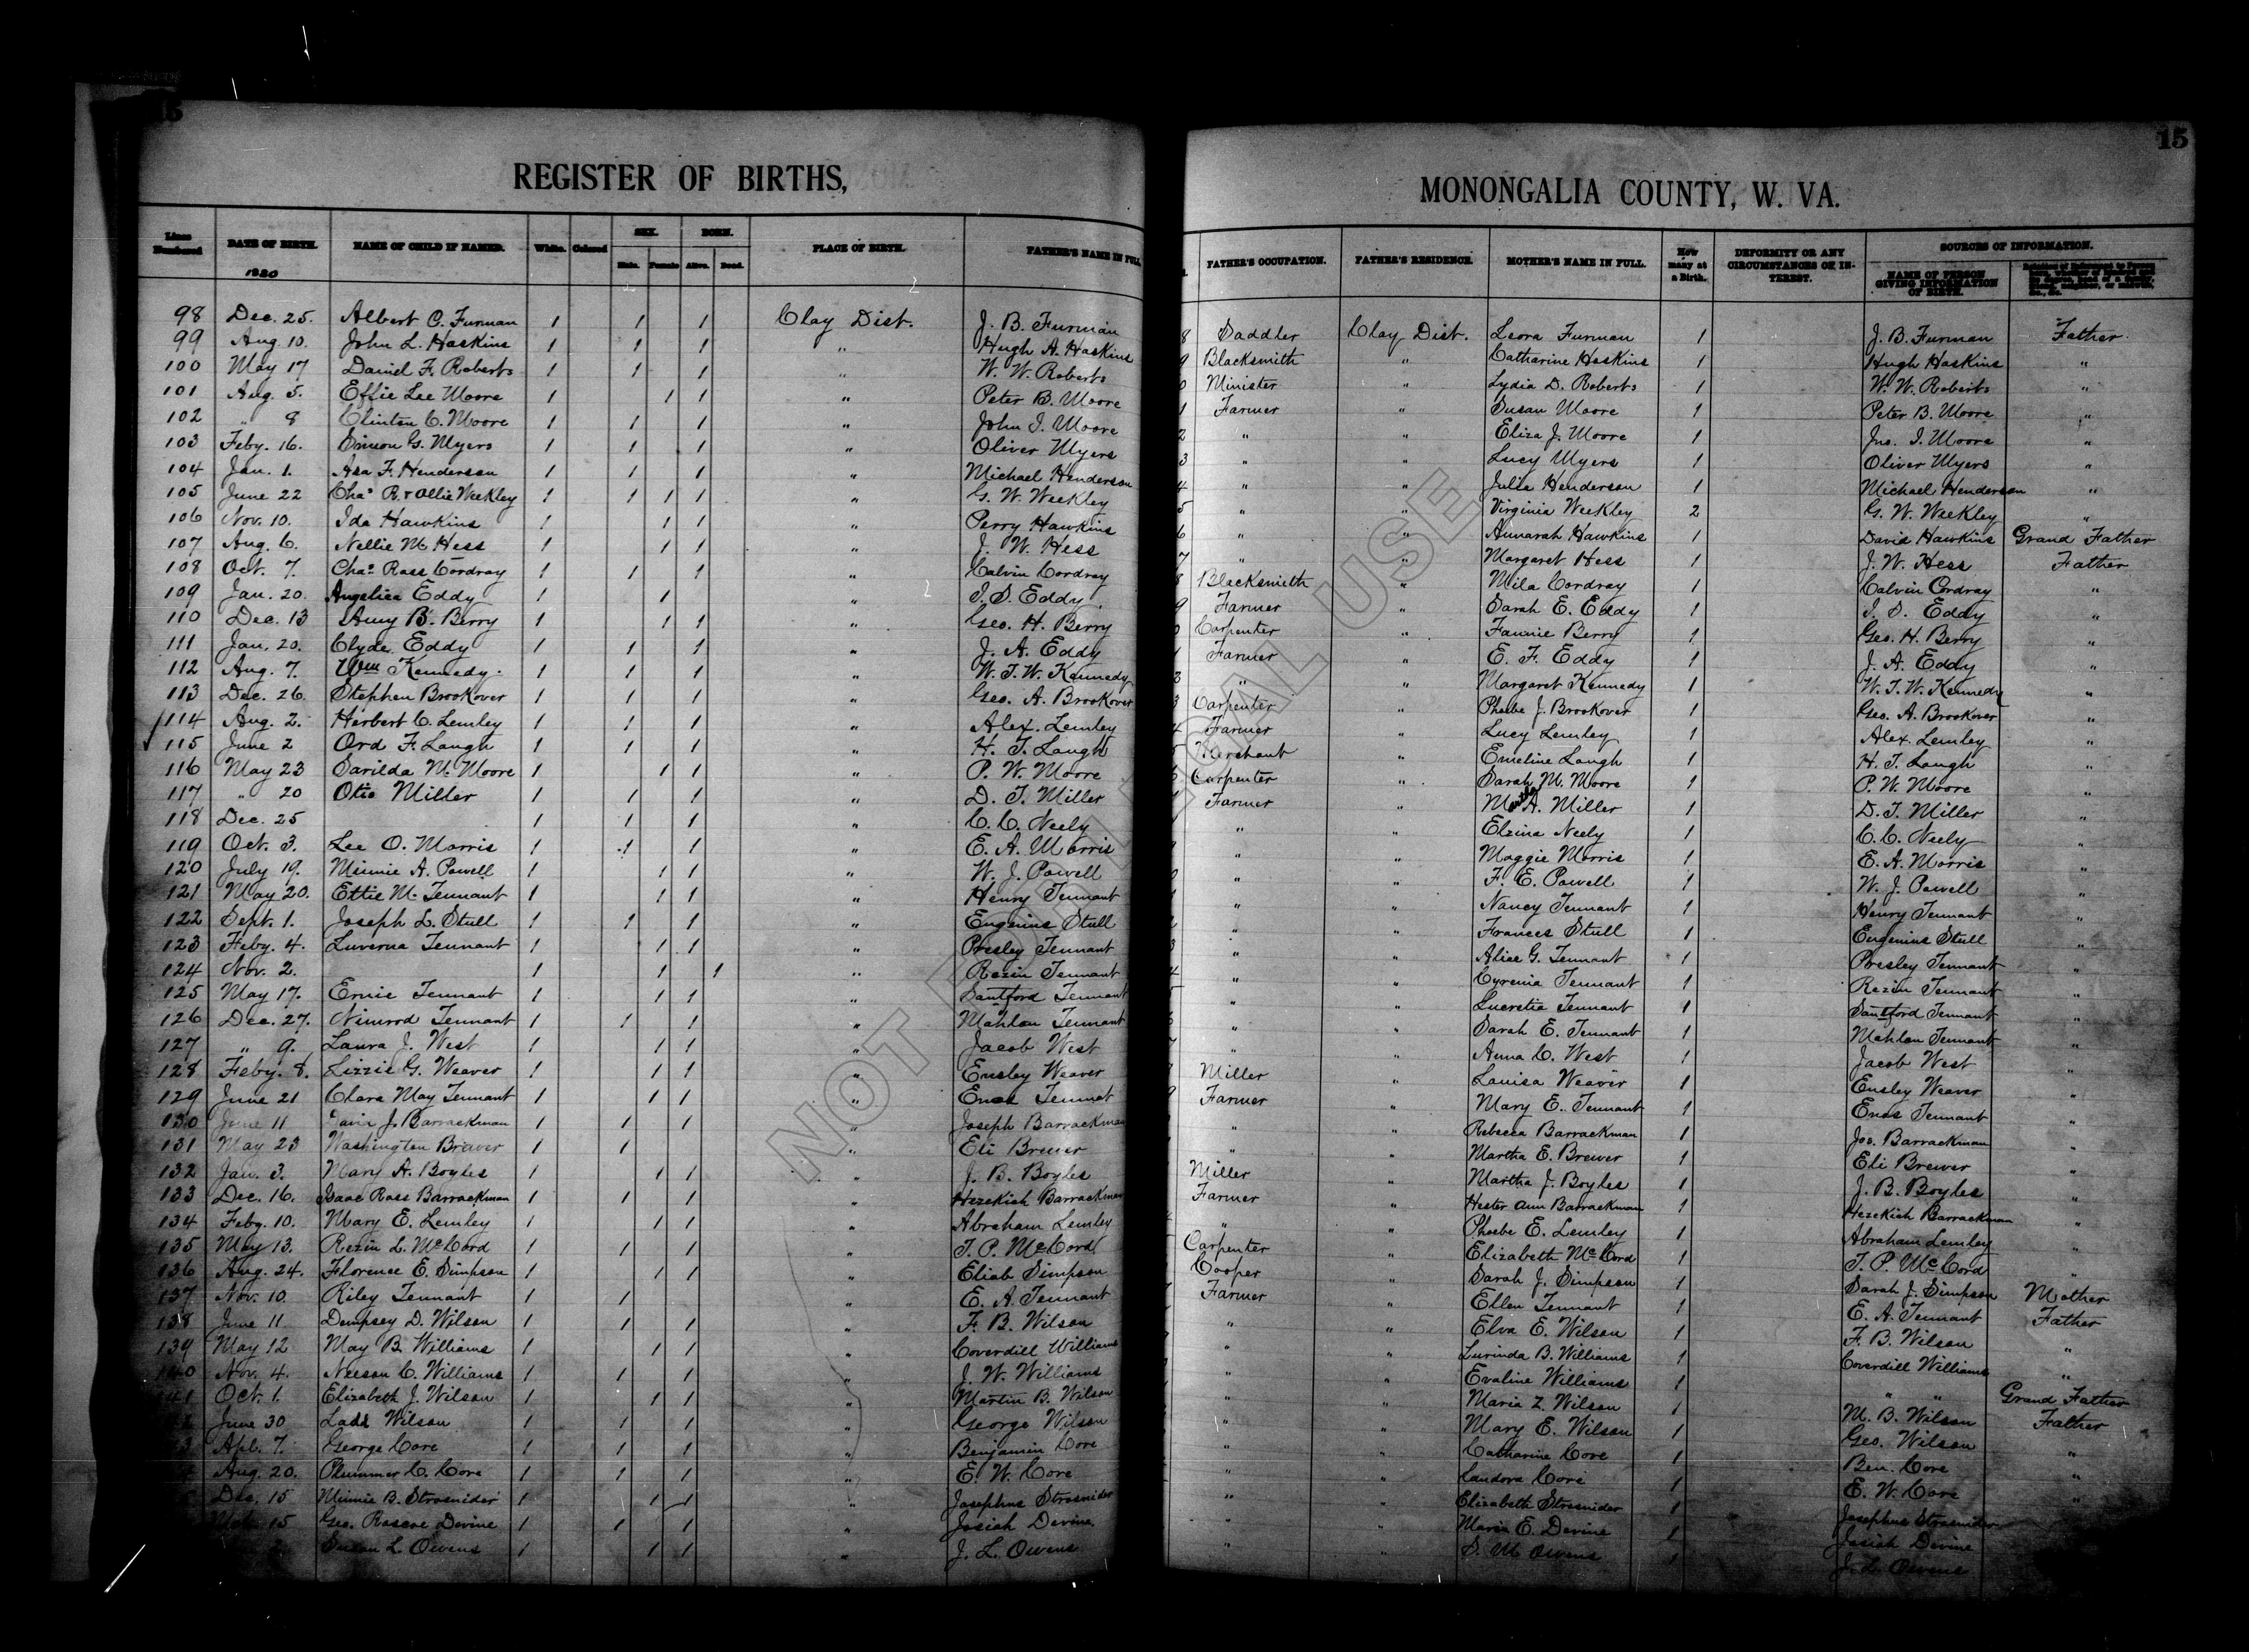 15
REGISTER OF BIRTHS,
Lines Numbered | DATE OF BIRTH. | NAME OF CHILD IF NAMED. | White. | Colored | SEX. Male. Female | BORN. Alive. Dead. | PLACE OF BIRTH. | FATHER'S NAME IN FULL
1880
98 Dec. 25. Albert C. Furman 1 1 1 Clay Dist. J. B. Furman
99 Aug. 10. John L. Haskins 1 1 1 " Hugh A. Haskins
100 May 17 Daniel F. Roberts 1 1 1 " W. W. Roberts
101 Aug. 5. Effie Lee Moore 1 1 1 " Peter B. Moore
102 " 8 Clinton C. Moore 1 1 1 " John I. Moore
103 Feby. 16. Simon G. Myers 1 1 1 " Oliver Myers
104 Jan. 1. Asa F. Henderson 1 1 1 " Michael Henderson
105 June 22 Chas R. & Ollie Weekley 1 1 1 1 " G. W. Weekley
106 Nov. 10. Ida Hawkins 1 1 1 " Perry Hawkins
107 Aug. 6. Nellie M Hess 1 1 1 " J. W. Hess
108 Oct. 7. Chas. Ross Cordray 1 1 1 " Calvin Cordray
109 Jan. 20. Angelica Eddy 1 1 " I. S. Eddy
110 Dec. 13 Amy B. Berry 1 1 1 " Geo. H. Berry
111 Jan. 20. Clyde Eddy 1 1 1 " J. A. Eddy
112 Aug. 7. Wm Kennedy. 1 1 1 " W. T. W. Kennedy
113 Dec. 26. Stephen Brookover 1 1 1 " Geo. A. Brookover
114 Aug. 2. Herbert C. Lemley 1 1 1 " Alex. Lemley
115 June 2 Ord F. Laugh 1 1 1 " H. T. Laugh
116 May 23 Sarilda M. Moore 1 1 1 " P. W. Moore
117 " 20 Otis Miller 1 1 1 " D. T. Miller
118 Dec. 25 1 1 1 " C. C. Neely
119 Oct. 3. Lee O. Morris 1 1 1 " E. A. Morris
120 July 19. Minnie A. Powell 1 1 1 " W. J. Powell
121 May 20. Ettie M. Tennant 1 1 1 " Henry Tennant
122 Sept. 1. Joseph L. Stull 1 1 1 " Eugenius Stull
123 Feby. 4. Luverna Tennant 1 1 1 " Presley Tennant
124 Nov. 2. 1 1 1 " Rezin Tennant
125 May 17. Ernie Tennant 1 1 1 " Santford Tennant
126 Dec. 27. Nimrod Tennant 1 1 1 " Mahlon Tennant
127 " 9. Laura J. West 1 1 1 " Jacob West
128 Feby. 8. Lizzie G. Weaver 1 1 1 " Ensley Weaver
129 June 21 Clara May Tennant 1 1 1 " Enos Tennat
130 June 11 J. Barrackman 1 1 1 " Joseph Barrackman
131 May 23 Washington Brewer 1 1 " Eli Brewer
132 Jan. 3. Mary A. Boyles 1 1 1 " J. B. Boyles
133 Dec. 16. Isaac Ross Barrackman 1 1 1 " Hezekiah Barrackman
134 Feby. 10. Mary E. Lemley 1 1 1 " Abraham Lemley
135 May 13. Rezin L. McCord 1 1 1 " T. P. McCord
136 Aug. 24. Florence E. Simpson 1 1 1 " Eliab Simpson
137 Nov. 10 Riley Tennant 1 1 " E. A. Tennant
138 June 11 Dempsey D. Wilson 1 1 1 " F. B. Wilson
139 May 12 May B. Williams 1 1 1 " Coverdill Williams
140 Nov. 4. Nelson C. Williams 1 1 1 " J. W. Williams
41 Oct. 1. Elizabeth J. Wilson 1 1 1 " Martin B. Wilson
June 30 Ladd Wilson 1 1 1 " George Wilson
3 Apl. 7. George Core 1 1 1 " Benjamin Core
Aug. 20. Plummer C. Core 1 1 1 " E. W. Core
Dec. 15 Minnie B. Strosnider 1 1 1 " Josephus Strosnider
15 Geo. Roscoe Devine 1 1 1 " Josiah Devine
Susan L. Owens 1 1 1 " J. L. Owens
15
MONONGALIA COUNTY, W. VA.
FATHER'S OCCUPATION. | FATHER'S RESIDENCE. | MOTHER'S NAME IN FULL. | How many at a Birth. | DEFORMITY OR ANY CIRCUMSTANCES OF INTEREST. | SOURCES OF INFORMATION. NAME OF PERSON GIVING INFORMATION OF BIRTH.
8 Saddler Clay Dist. Leora Furman 1 J. B. Furman Father
9 Blacksmith " Catharine Haskins 1 Hugh Haskins "
0 Minister " Lydia D. Roberts 1 W. W. Roberts "
1 Farmer " Susan Moore 1 Peter B. Moore "
2 " " Eliza J. Moore 1 Jno. I. Moore "
3 " " Lucy Myers 1 Oliver Myers "
4 " " Julia Henderson 1 Michael Henderson "
5 " " Virginia Weekley 2 G. W. Weekley "
6 " " Annarah Hawkins 1 David Hawkins Grand Father
7 " " Margaret Hess 1 J. W. Hess Father
8 Blacksmith " Mila Cordray 1 Calvin Cordray "
9 Farmer " Sarah E. Eddy 1 I. S. Eddy "
0 Carpenter " Fannie Berry 1 Geo. H. Berry "
1 Farmer " E. F. Eddy 1 J. A. Eddy "
2 " " Margaret Kennedy 1 W. T. W. Kennedy "
3 Carpenter " Phoebe J. Brookover 1 Geo. A. Brookover "
4 Farmer " Lucy Lemley 1 Alex. Lemley "
5 Merchant " Emeline Laugh 1 H. T. Laugh "
6 Carpenter " Sarah M. Moore 1 P. W. Moore "
Farmer " Martha A. Miller 1 D. T. Miller "
" " Elzina Neely 1 C. C. Neely "
" " Maggie Morris 1 E. A. Morris "
" " F. E. Powell 1 W. J. Powell "
" " Nancy Tennant 1 Henry Tennant "
" " Frances Stull 1 Eugenius Stull "
" " Alice G. Tennant 1 Presley Tennant "
" " Cyrenia Tennant 1 Rezin Tennant "
" " Lucretia Tennant 1 Santford Tennant "
" " Sarah E. Tennant 1 Mahlon Tennant "
" " Anna C. West 1 Jacob West "
Miller " Louisa Weaver 1 Ensley Weaver "
9 Farmer " Mary E. Tennant 1 Enos Tennant "
" " Rebecca Barrackman 1 Jos. Barrackman "
" " Martha E. Brewer 1 Eli Brewer "
Miller " Martha J. Boyles 1 J. B. Boyles "
Farmer " Hester Ann Barrackman 1 Hezekiah Barrackman "
" " Phoebe E. Lemley 1 Abraham Lemley "
Carpenter " Elizabeth McCord 1 T. P. McCord "
Cooper " Sarah J. Simpson 1 Sarah J. Simpson Mother
Farmer " Ellen Tennant 1 E. A. Tennant Father
" " Elva E. Wilson 1 F. B. Wilson "
" " Lurinda B. Williams 1 Coverdill Williams "
" " Evaline Williams 1 " " Grand Father
" " Maria Z. Wilson 1 M. B. Wilson Father
" " Mary E. Wilson 1 Geo. Wilson "
" " Catharine Core 1 Ben. Core "
" " Candora Core 1 E. W. Core "
" " Elizabeth Strosnider 1 Josephus Strosnider
" " Maria E. Devine 1 Josiah Devine
" " S. M Owens 1 J. L. Owens